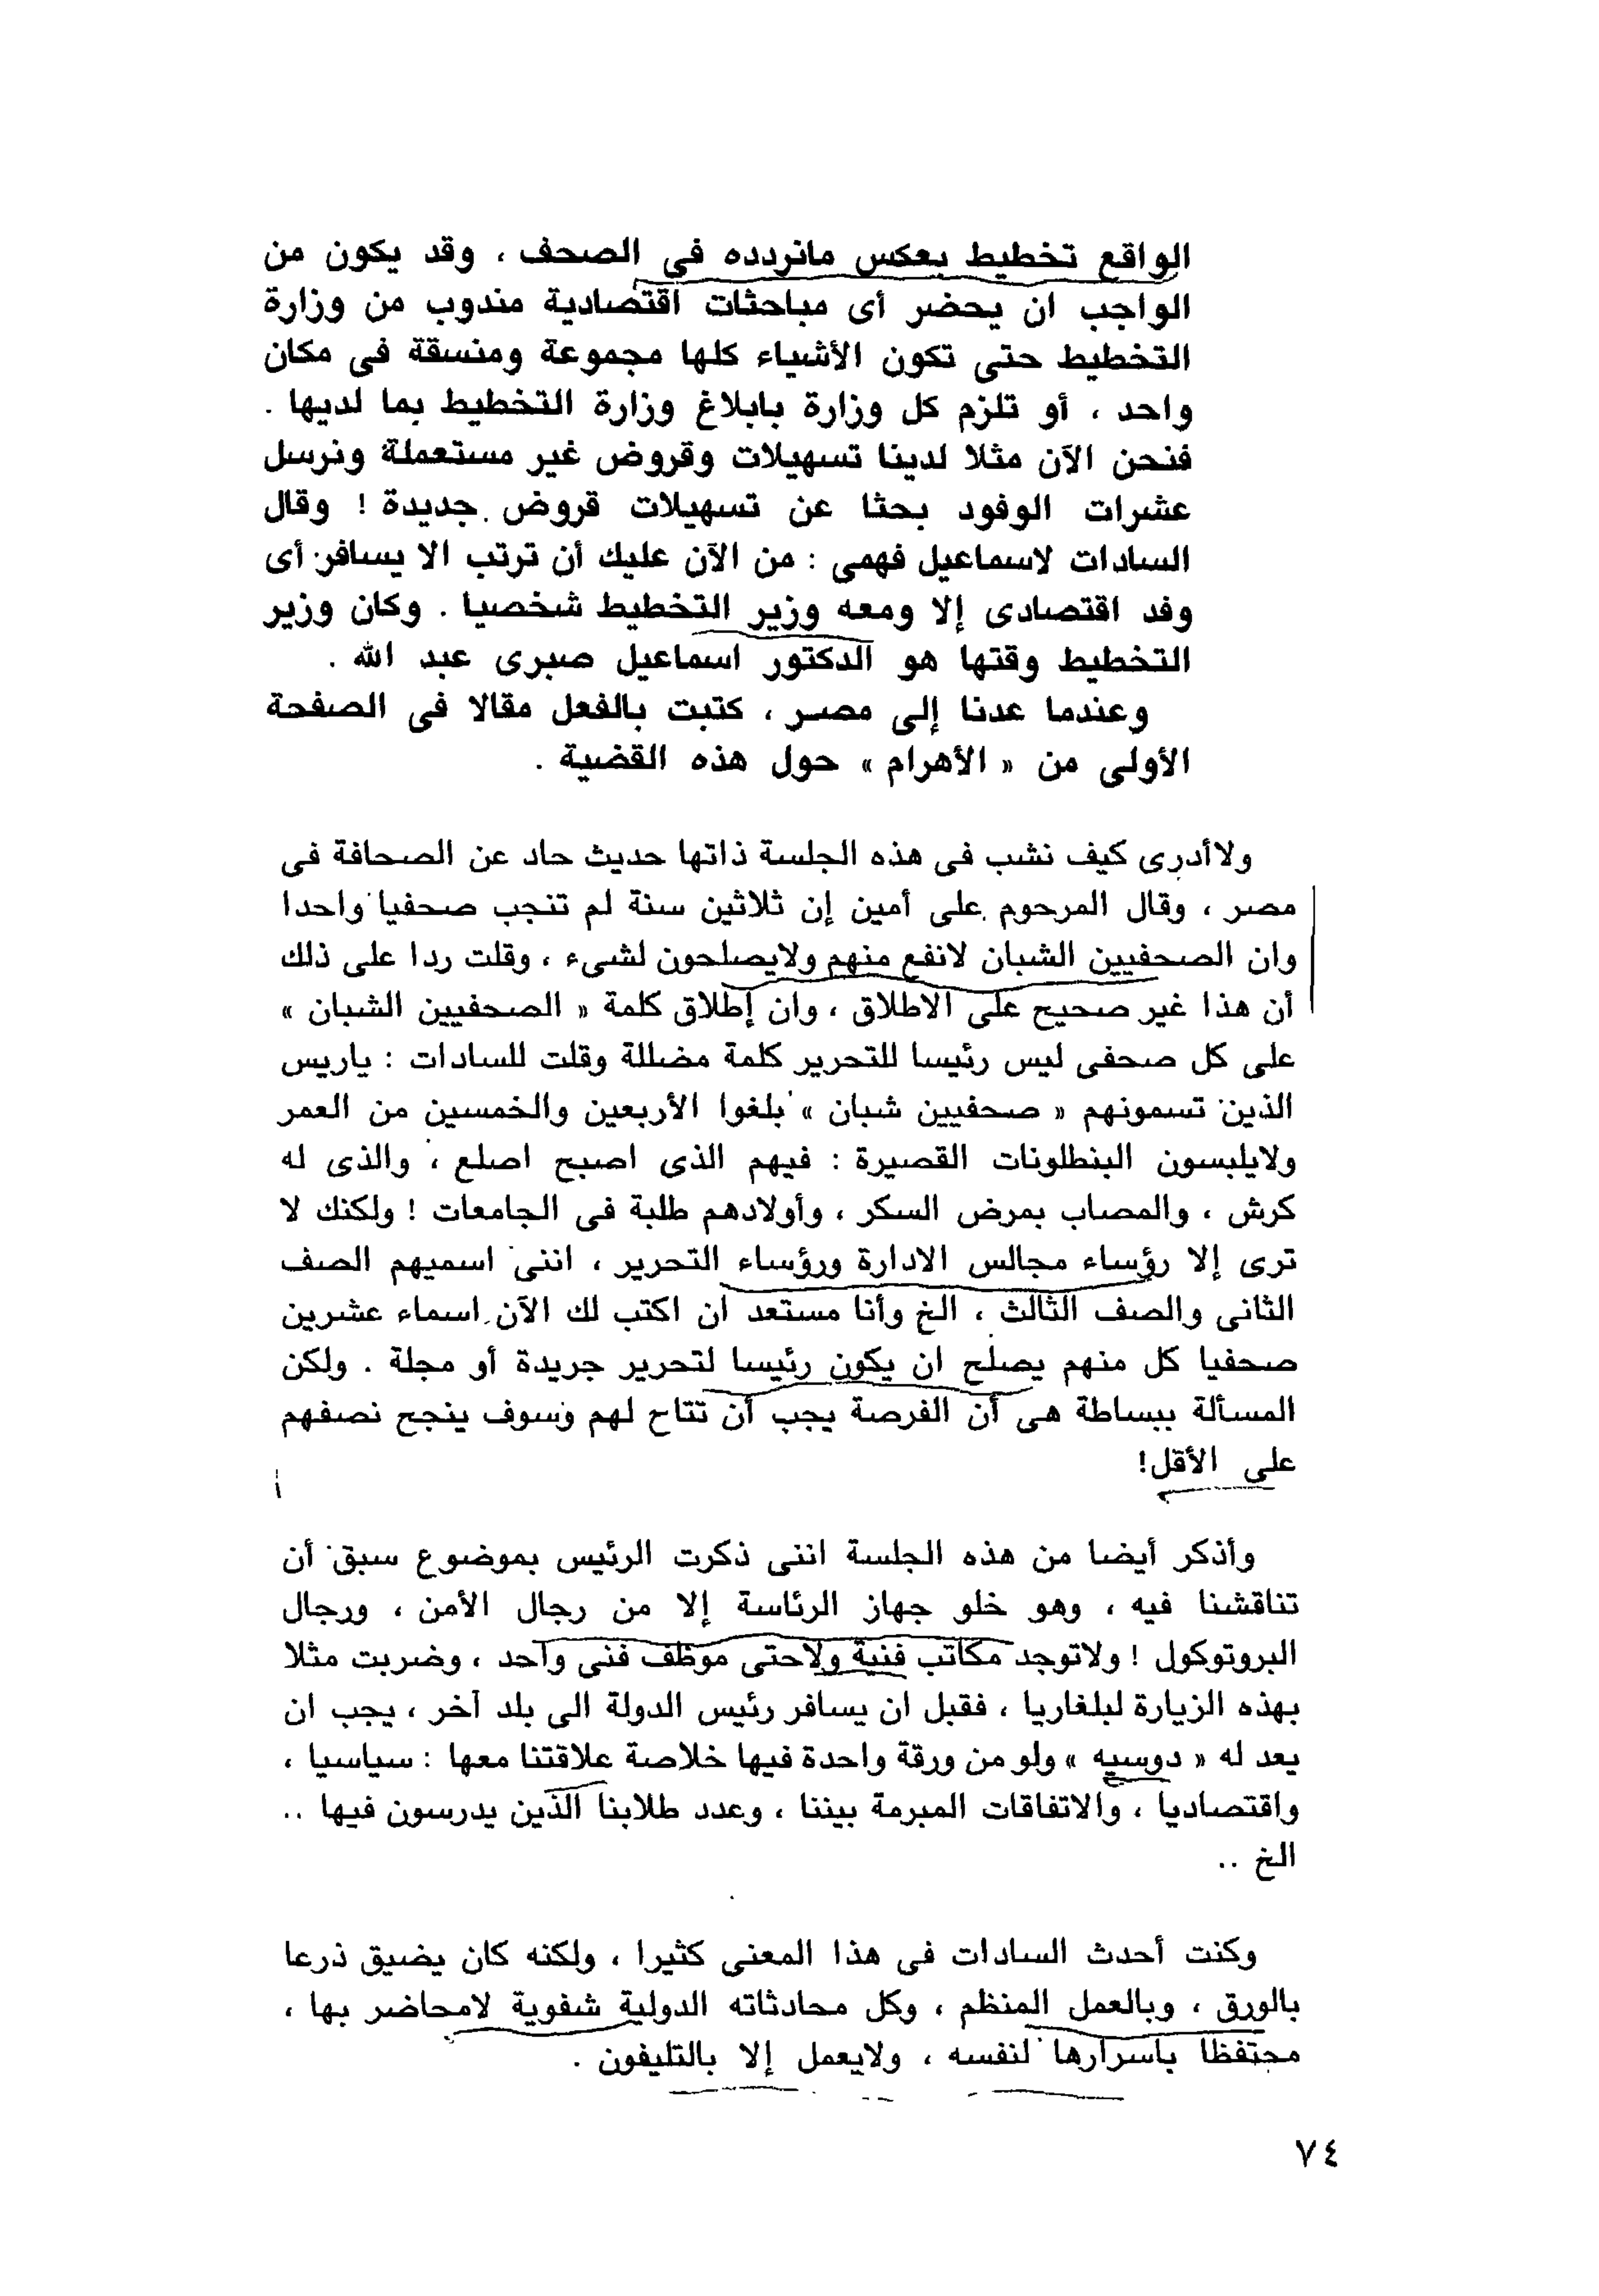 الواقع تخطيط بعكس مانردده فى الصحف ، وقد يكون من
الواجب ان يحضر أى مباحثات اقتصادية مندوب من وزارة
التخطيط حتى تكون الأشياء كلها مجموعة ومنسقة فى مكان
واحد ، أو تلزم كل وزارة بابلاغ وزارة التخطيط بما لديها .
فنحن الآن مثلا لدينا تسهيلات وقروض غير مستعملة ونرسل
عشرات الوفود بحثا عن تسهيلات قروض جديدة ! وقال
السادات لاسماعيل فهمى : من الآن عليك أن ترتب الا يسافر أى
وفد اقتصادى إلا ومعه وزير التخطيط شخصيا . وكان وزير
التخطيط وقتها هو الدكتور اسماعيل صبرى عبد الله .
وعندما عدنا إلى مصر ، كتبت بالفعل مقالا فى الصفحة
الأولى من « الأهرام » حول هذه القضية .
ولاأدرى كيف نشب فى هذه الجلسة ذاتها حديث حاد عن الصحافة فى
مصر ، وقال المرحوم على أمين إن ثلاثين سنة لم تنجب صحفيا واحدا
وان الصحفيين الشبان لانفع منهم ولايصلحون لشىء ، وقلت ردا على ذلك
أن هذا غير صحيح على الاطلاق ، وان إطلاق كلمة « الصحفيين الشبان »
على كل صحفى ليس رئيسا للتحرير كلمة مضللة وقلت للسادات : ياريس
الذين تسمونهم « صحفيين شبان » بلغوا الأربعين والخمسين من العمر
ولايلبسون البنطلونات القصيرة : فيهم الذى اصبح اصلع ، والذى له
كرش ، والمصاب بمرض السكر ، وأولادهم طلبة فى الجامعات ! ولكنك لا
ترى إلا رؤساء مجالس الادارة ورؤساء التحرير ، اننى اسميهم الصف
الثانى والصف الثالث ، الخ وأنا مستعد ان اكتب لك الآن اسماء عشرين
صحفيا كل منهم يصلح ان يكون رئيسا لتحرير جريدة أو مجلة . ولكن
المسألة ببساطة هى أن الفرصة يجب أن تتاح لهم وسوف ينجح نصفهم
على الأقل!
وأذكر أيضا من هذه الجلسة اننى ذكرت الرئيس بموضوع سبق أن
تناقشنا فيه ، وهو خلو جهاز الرئاسة إلا من رجال الأمن ، ورجال
البروتوكول ! ولاتوجد مكاتب فنية ولاحتى موظف فنى واحد ، وضربت مثلا
بهذه الزيارة لبلغاريا ، فقبل ان يسافر رئيس الدولة الى بلد آخر ، يجب ان
يعد له « دوسيه » ولو من ورقة واحدة فيها خلاصة علاقتنا معها : سياسيا ،
واقتصاديا ، والاتفاقات المبرمة بيننا ، وعدد طلابنا الذين يدرسون فيها ..
الخ ..
وكنت أحدث السادات فى هذا المعنى كثيرا ، ولكنه كان يضيق ذرعا
بالورق ، وبالعمل المنظم ، وكل محادثاته الدولية شفوية لامحاضر بها ،
محتفظا باسرارها لنفسه ، ولايعمل إلا بالتليفون .
٧٤